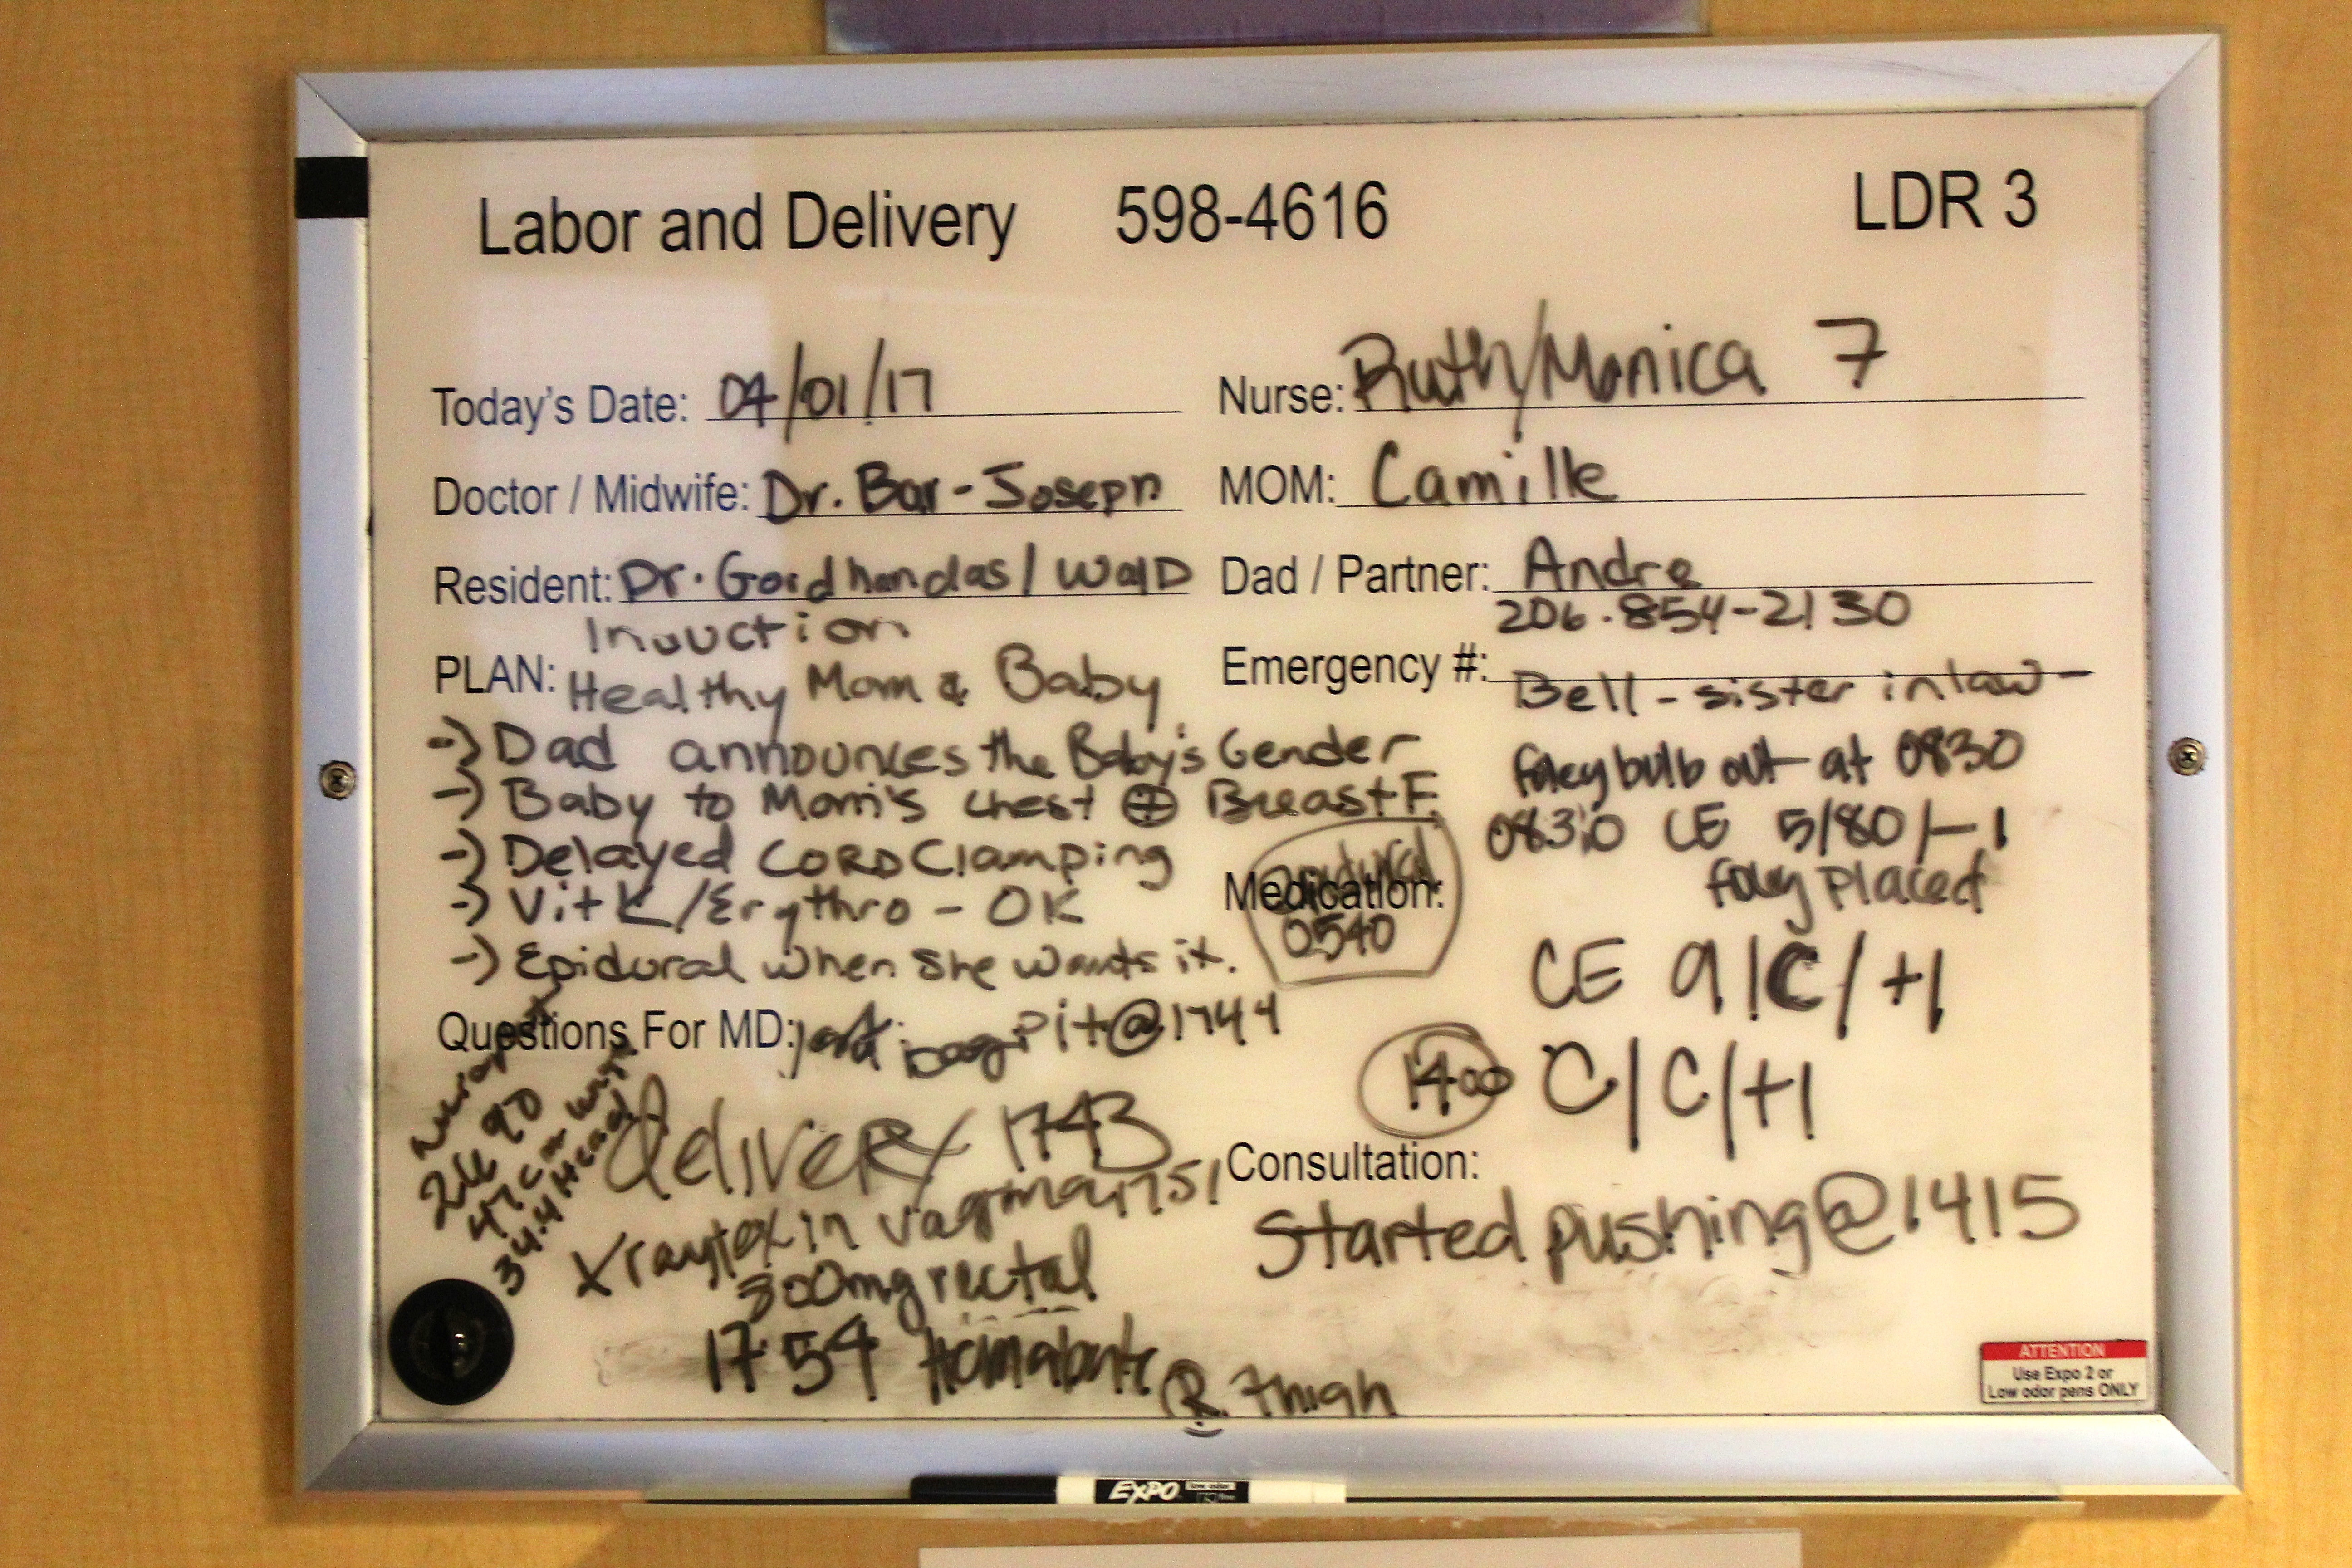 Labor and Delivery 598-4616 LDR 3
Today's Date: 04/01/17
Nurse: Ruth/Monica 7
Doctor / Midwife: Dr. Bar-Joseph
MOM: Camille
Resident: Dr. Gordhandas / Wald
Dad / Partner: Andre
206.854-2130
Induction
PLAN: Healthy Mom & Baby
Emergency #:
Bell - sister in law -
-) Dad announces the Baby's Gender
-) Baby to Mom's chest ⊕ BreastF.
-) Delayed CORD Clamping
-) Vit K/Erythro - OK
-) Epidural when she wants it.
foley bulb out at 0830
0830 CE 5/80/-1
foley placed
Medication:
Epidural
0540
CE 9/C/+1
1400 C/C/+1
Questions For MD: bag pit@1744
delivery 1743
47 cm
34.4 Head
in vagina 1751
800mg rectal
17:54 R. Thigh
Consultation:
Started pushing@1415
ATTENTION
Use Expo 2 or
Low odor pens ONLY
EXPO low odor